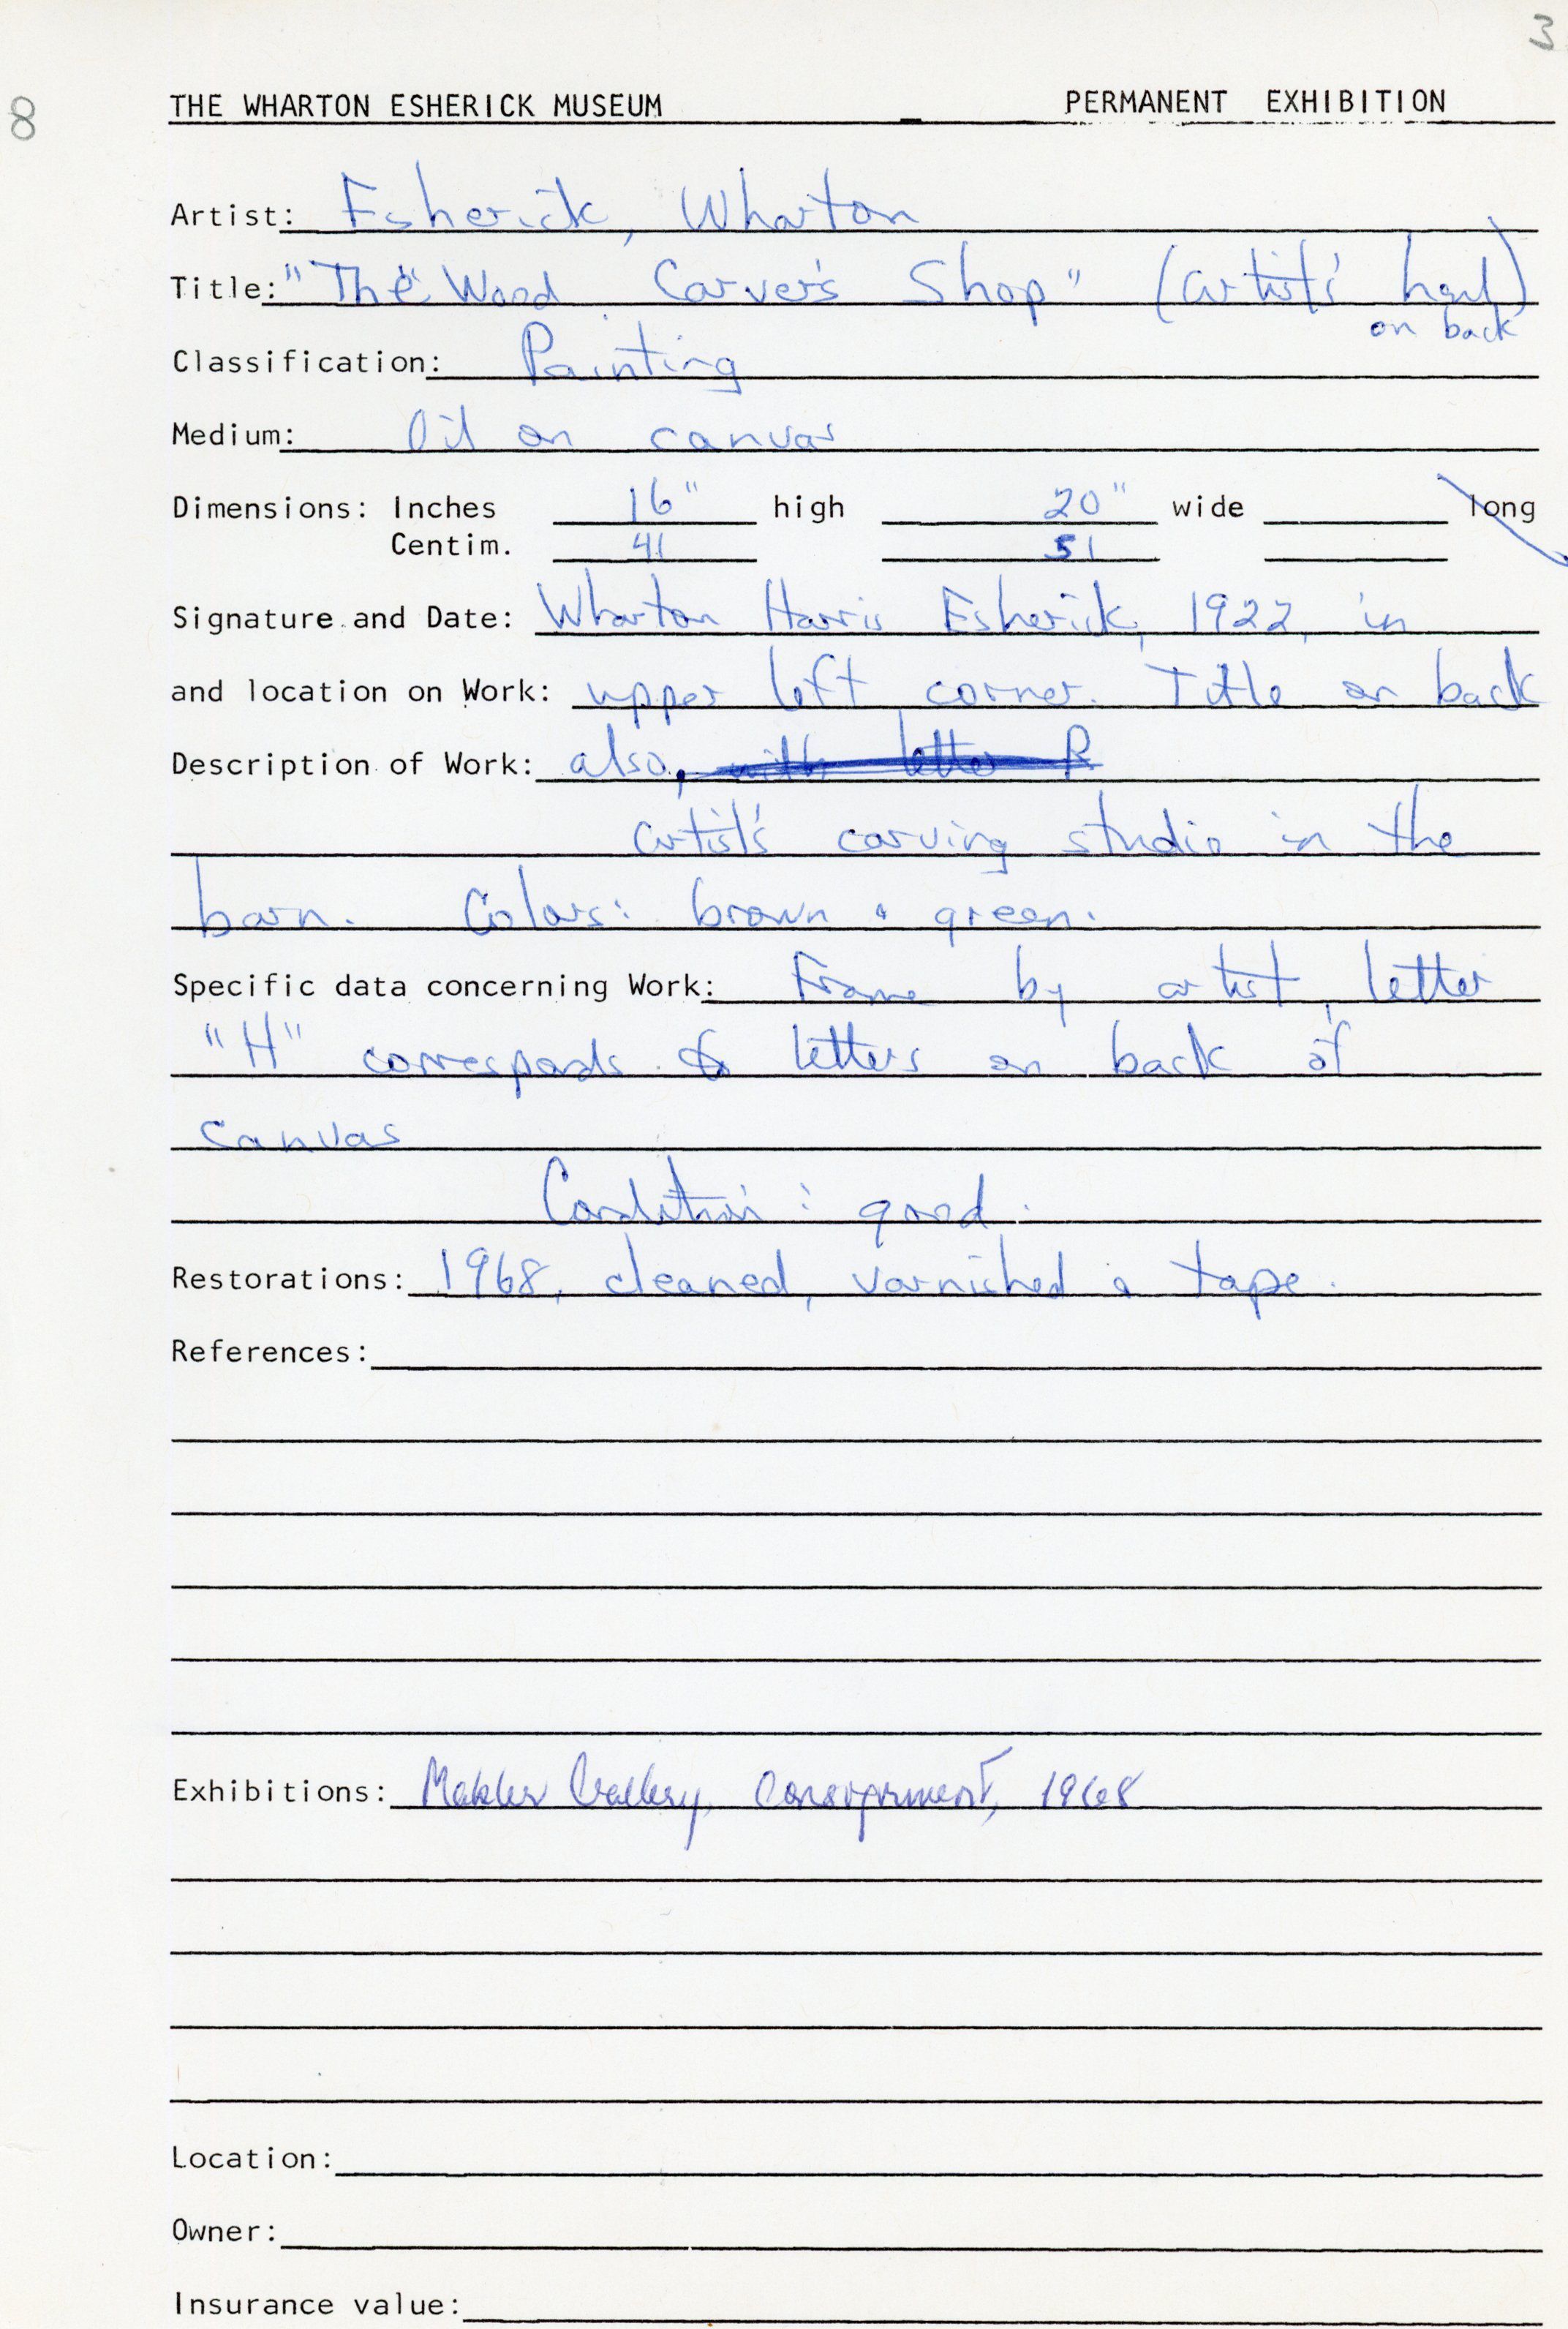 3
8
THE WHARTON ESHERICK MUSEUM PERMANENT EXHIBITION
Artist: Esherick, Wharton
Title: "The" Wood Carver's Shop" (artist's hand)
on back
Classification: Painting
Medium: Oil on canvas
Dimensions: Inches 16" high 20" wide long
Centim. 41 51
Signature and Date: Wharton Harris Esherick, 1922, in
and location on Work: upper left corner. Title on back
Description of Work: also, with letter R
artist's carving studio in the
barn. Colors: brown & green.
Specific data concerning Work: Frame by artist, letter
"H" corresponds to letters on back of
canvas
Condition: good.
Restorations: 1968, cleaned, varnished & tape.
References:
Exhibitions: Makler Gallery, Consignment, 1968
Location:
Owner:
Insurance value: